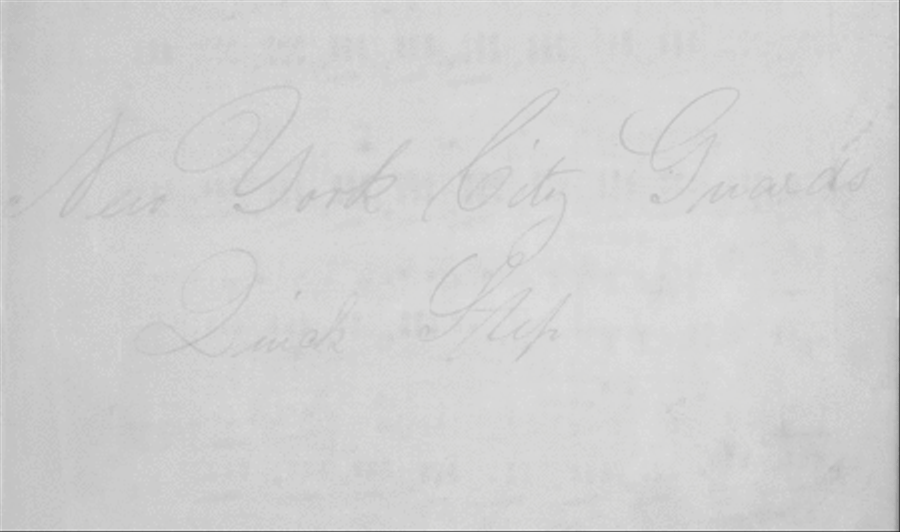 New York City Guards
Quick Step